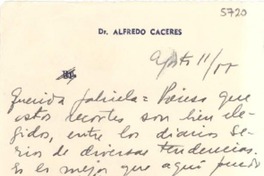 5720
Dr. ALFREDO CACERES
Agosto 11/55
Querida Gabriela = Pienso que
estos recortes son bien ele-
gidos, entre los diarios se-
rios de diversas tendencias.
Es lo mejor que aquí puedo